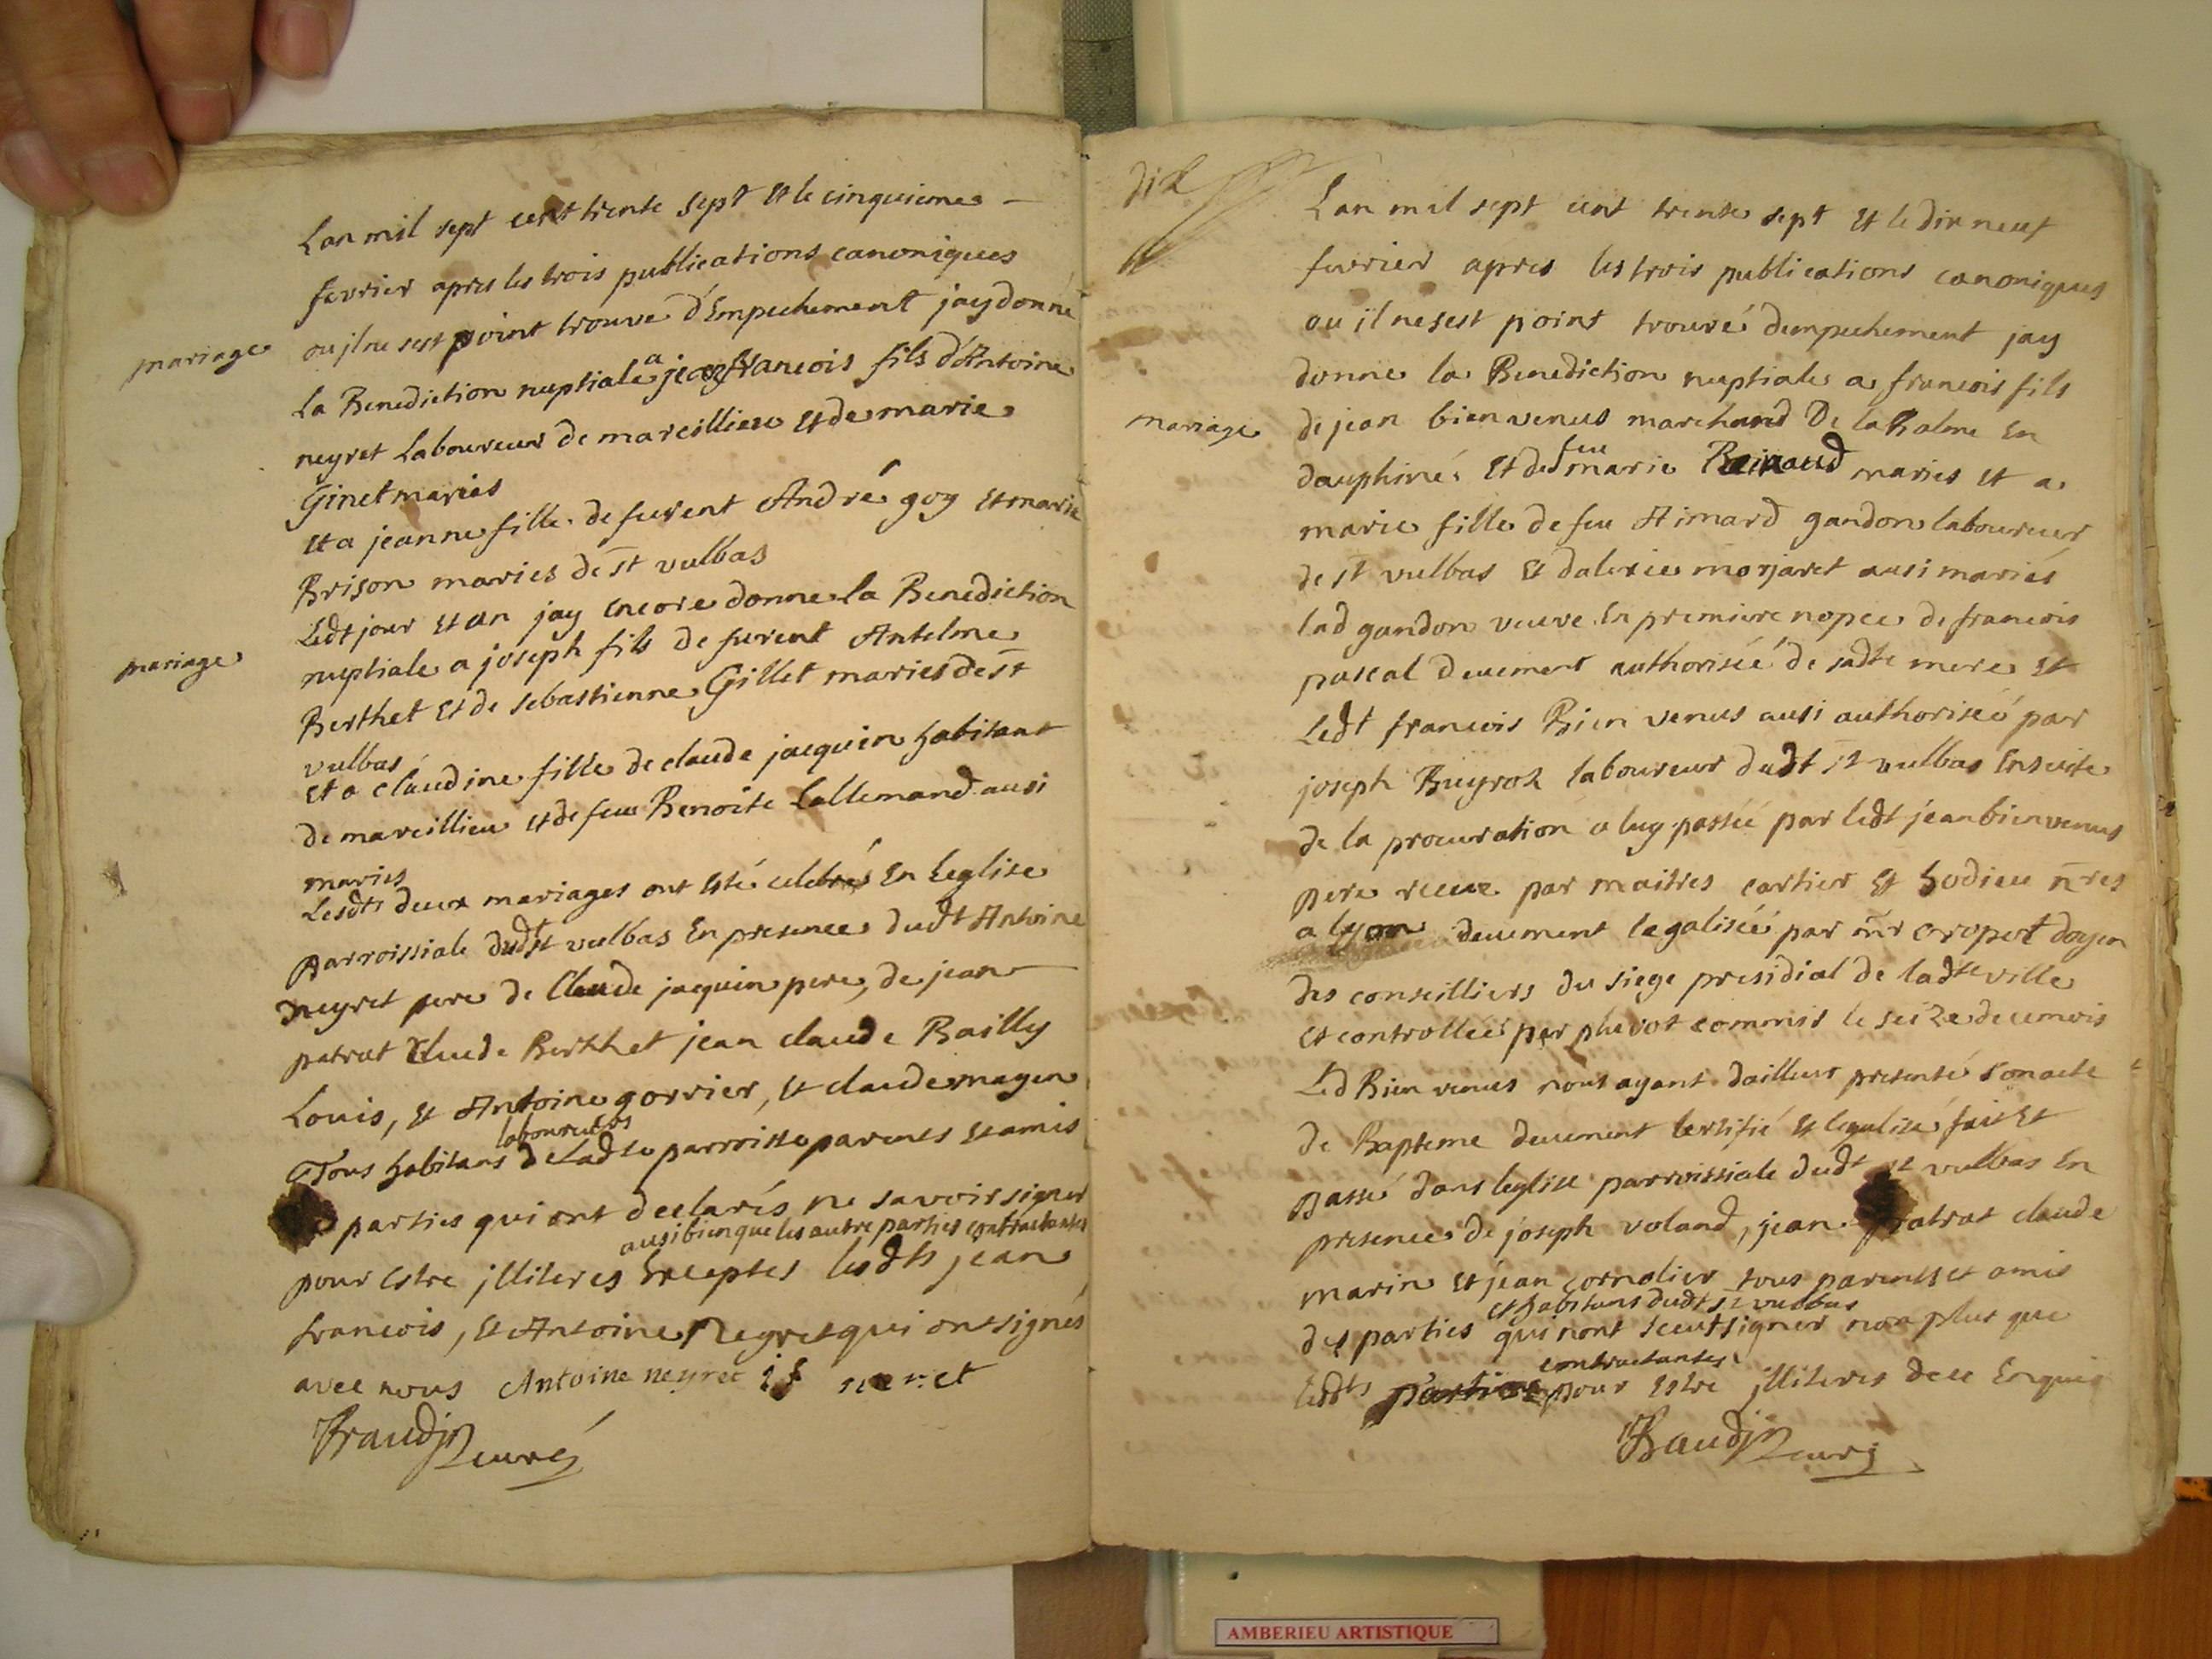 Lan mil sept cent trente sept et le cinquieme
fevrier apres les trois publications canoniques
ou jl ne sest point trouvé d'Empechement jay donné
mariage
La Benediction nuptiale a jean francois fils d'Antoine
neyret Laboureur de marcillieu et de marie
Ginet mariés
et a jeanne fille de furent André goy et marie
Brison mariés de st vulbas
Ledt jour et an jay encore donne la Benediction
mariage
nuptiale a joseph fils de furent Antelme
Berthet et de sebastienne Gillet mariés de st
vulbas
et a claudine fille de claude jacquin habitant
de marcillieu et de feue Benoite Lallemand ausi
mariés
Lesdts deux mariages ont esté celebrés En Leglise
parroissiale dudt st vulbas En presence dudt Antoine
neyret pere de Claude jaquin pere, de jean
patrat Claude Berthet jean claude Bailly
Louis, et Antoine gorrier, et claude magen
laboureurs
Tous habitans de Ladte parroisse parents et amis
parties qui ont declarés ne savoir signer
ausi bien que les autre parties contractantes
pour Estre jlliteres Exceptes lesdts jean
francois, et Antoine Neyret qui ont signés
avec nous Antoine neyret j f neret
Braudjn curé
dix
Lan mil sept cent trente sept et le dix neuf
fevrier apres les trois publications canoniques
ou il ne sest point trouvé dempechement jay
donne la Benediction nuptiale a francois fils
mariage
de jean bienvenus marchand De la Balme En
dauphiné et de feue marie Reinaud mariés et a
marie fille de feu Aimard gandon laboureur
de st vulbas et dalexie morjaret ausi mariés
lad gandon veuve En premiere nopce de francois
pascal deuement authorisée de sadte mere et
Ledt francois Bienvenus ausi authorisé par
joseph Buyrot laboureur dudt st vulbas Ensuite
de la procuration a luy passée par ledt jean bienvenus
pere receue par maitres cartier et hodieu nres
a lyon deuement legalisée par mr cropet doyen
des conseilliers du siege presidial de ladte ville
et controllée par pluvot commis le seize de ce mois
Led Bienvenus nous ayant dailleur presenté son acte
de Bapteme deuement certifié et legalisé fait et
passé dans leglise parroissiale dudt st vulbas En
presence de joseph voland, jean patrat claude
marin et jean cornolier tous parents et amis
et habitans dudt st vulbas
des parties qui nont sceut signer non plus que
contractantes
lesdts parties pour Estre jlliteres de ce Enquis
Braudjn curé
AMBERIEU ARTISTIQUE